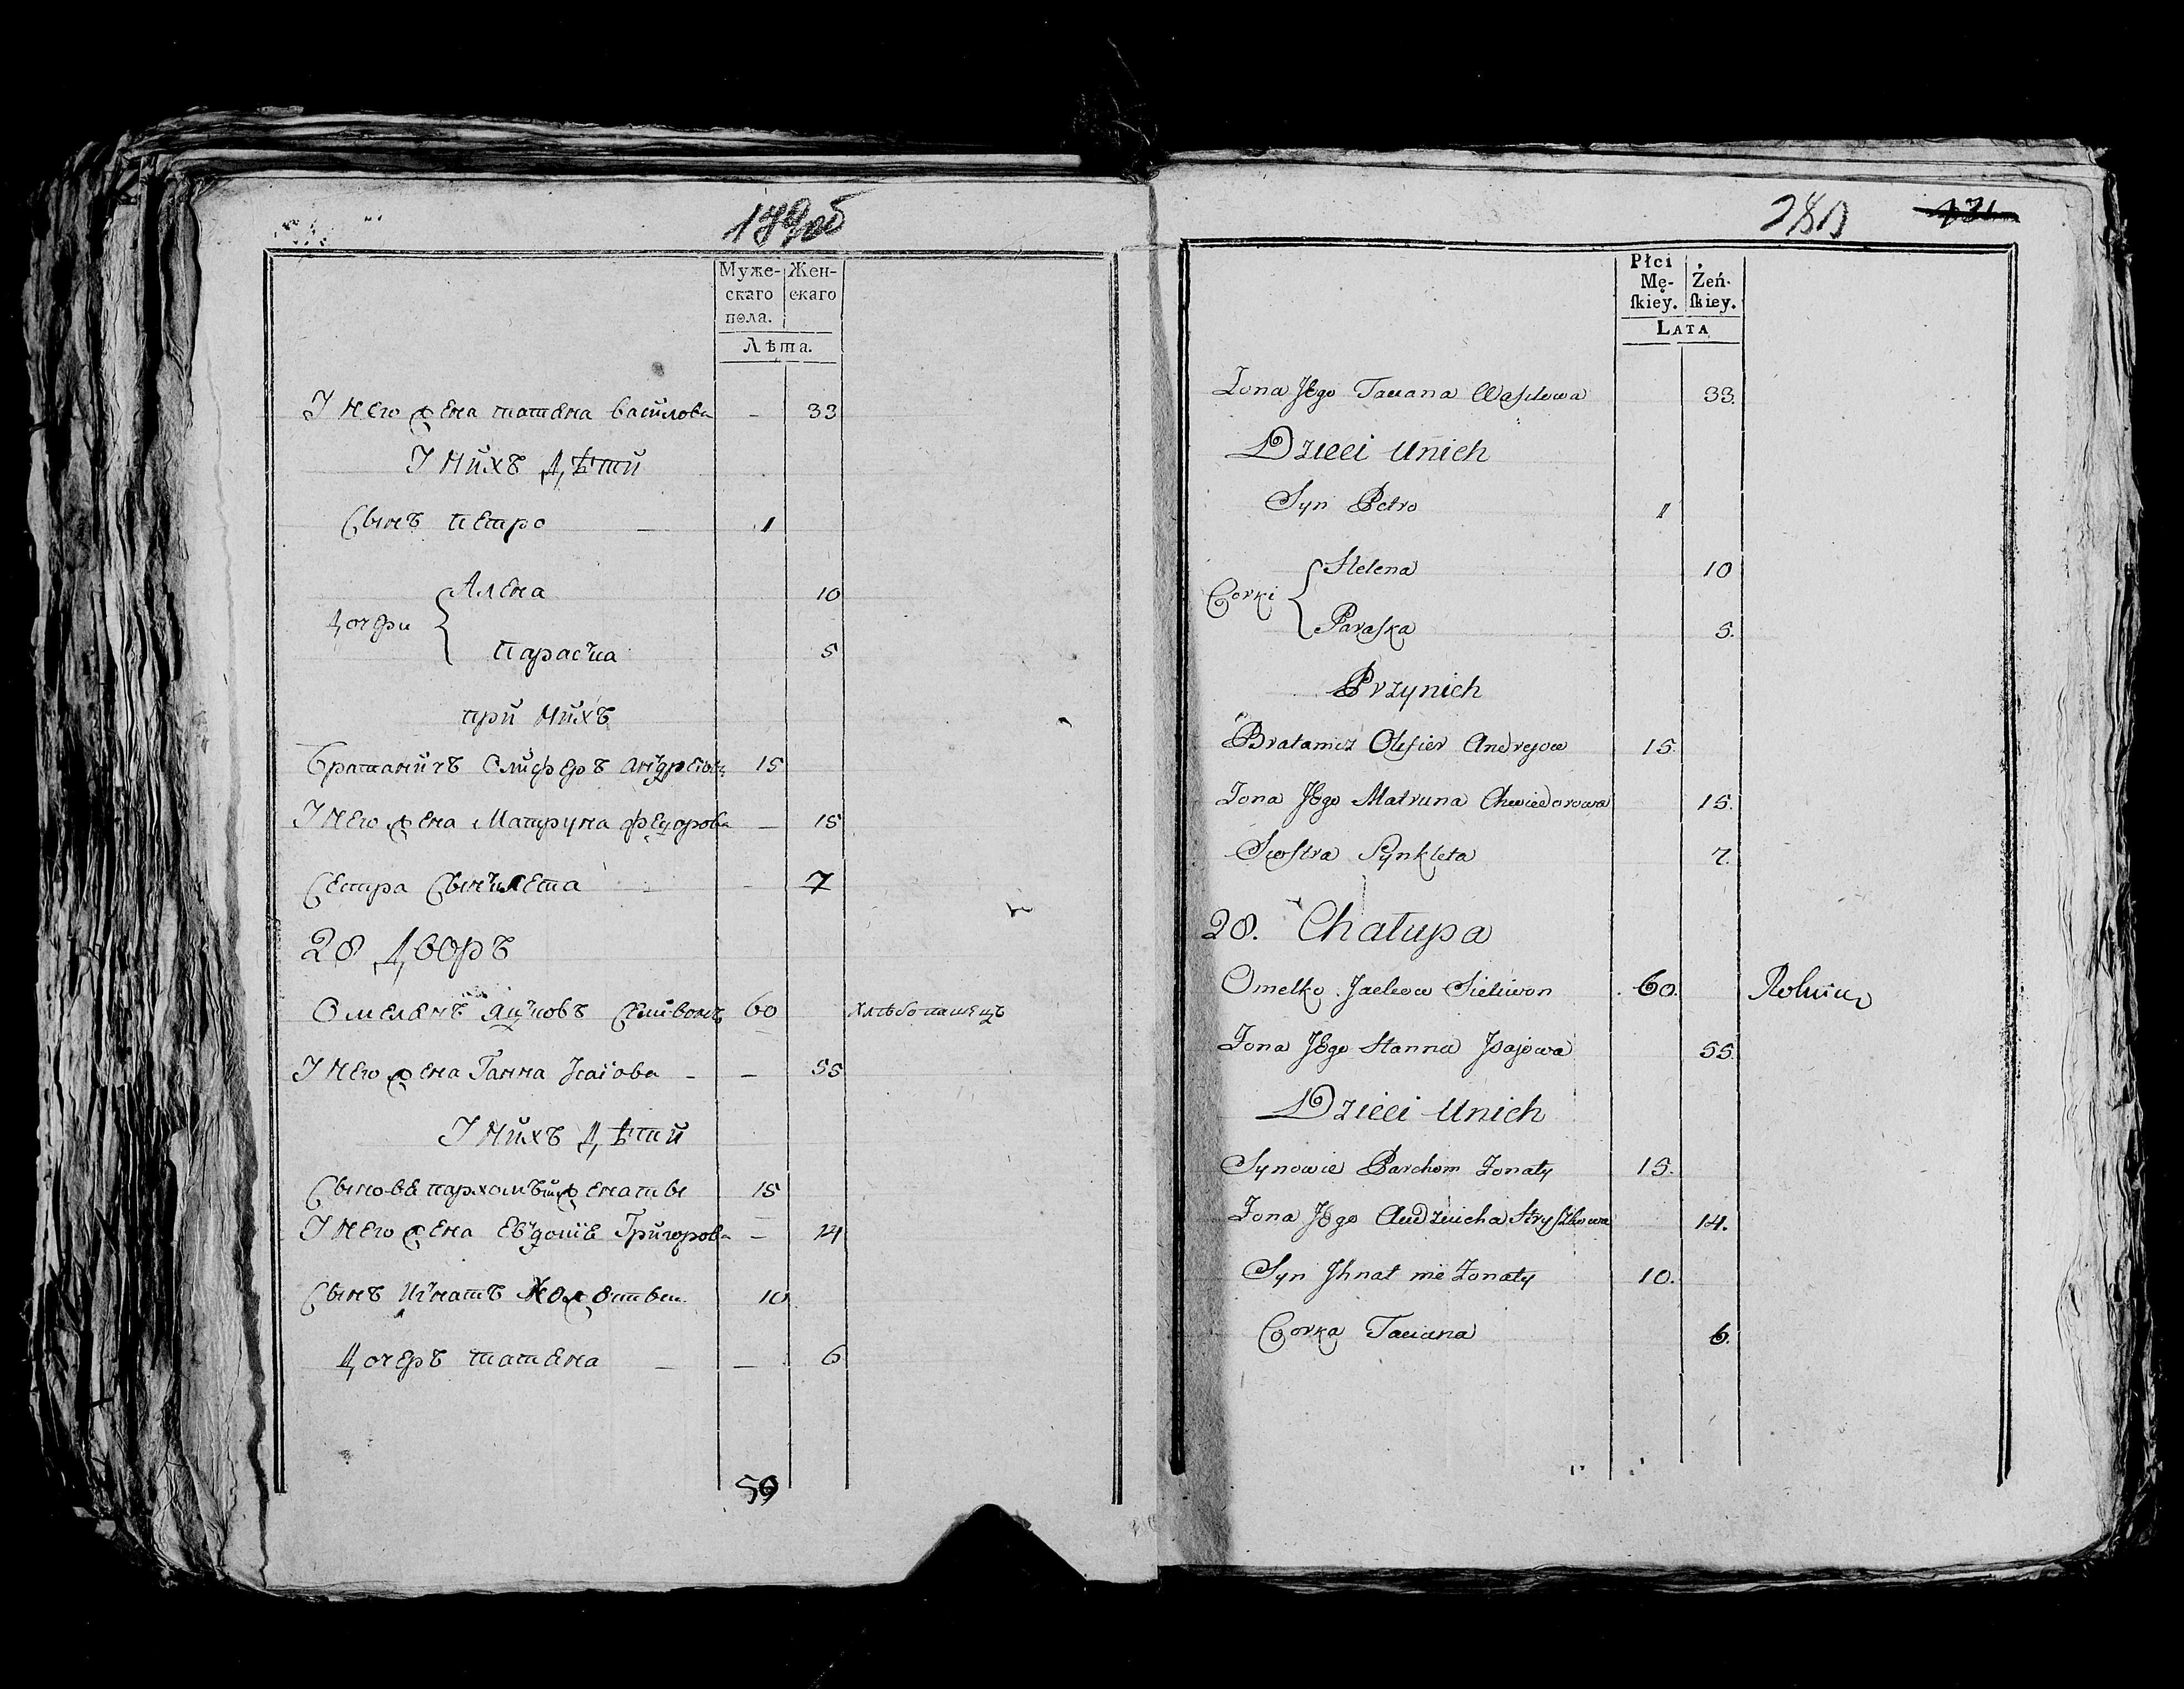 179об
Муже- Жен-
скаго скаго
пола.
Лѣта.
У него жена татяна василова - 33
У нихъ дѣти
Сынъ петро 1
Дочери { Алена 10
параска 5
при нихъ
Братаничъ Олиферъ андреювъ 15
У него жена Матруна федорова - 15
Сестра Сынклета - 7
28 Дворъ
Омелянъ яцковъ Селивонъ 60 хлѣбопашецъ
У него жена Ганна Исаіова - - 55
У нихъ дѣти
Сыновѣ пархомъ женаты 15
У него жена Евдокія Григорова - 14
Сынъ Игнатъ холостый 10
Дочеръ татяна - 6
59
280 131
Płci
Mę- Żeń-
ſkiey. ſkiey.
LATA
Zona Jego Taciana Waſilowa 33.
Dzieci Unich
Syn Petro 1
Corki { Helena 10
Paraſka 5.
Przynich
Bratanicz Olifier Andrejow 15.
Zona Jego Matruna Chwiedorowa 15.
Siostra Synkleta 7.
28. Chałupa
Omelko Jackow Sieliwon 60. Rolnik
Zona Jego Hanna Jsajowa 55.
Dzieci Unich
Synowie Parchom Zonaty 15.
Zona Jego 14.
Syn Jhnat nie Zonaty 10.
Corka Taciana 6.